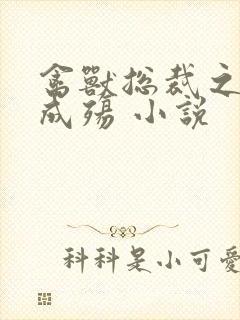 禽獸总裁之
成殇 小說
科科是小可愛